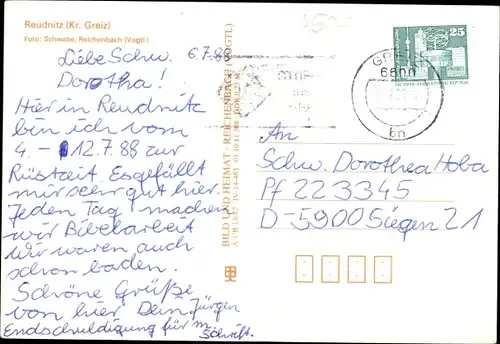 Reudnitz (Kr. Greiz)
Foto: Schwabe, Reichenbach (Vogtl.)
Liebe Schw. 6.7.88
Dorotha!
Hier in Reudnitz
bin ich vom
4. - 12.7.88 zur
Rüstzeit. Es gefällt
mir sehr gut hier.
Jeden Tag machen
wir Bibelarbeit
Wir waren auch
schon baden.
Schöne Grüße
von hier Dein Jürgen
Endschuldigung für m. Schrift.
BILD UND HEIMAT REICHENBACH (VOGTL)
25
6600
bn
An
Schw. Dorothea Hoba
Pf 223345
D-5900 Siegen 21